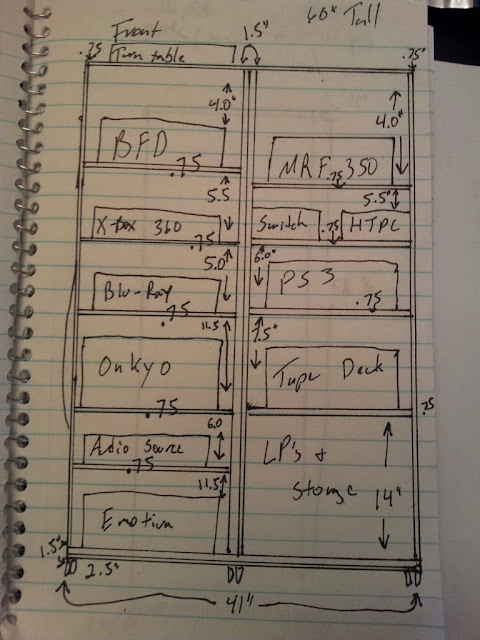 Front
60" Tall
1.5"
.75
Turn table
.75"
4.0"
4.0"
BFD
.75
MRF 350
.75
5.5
5.5"
X-box 360
.75
Switch
.75
HTPC
5.0
6.0"
Blu-Ray
.75
PS3
.75
11.5
7.5"
Onkyo
.75
Tape Deck
.75
6.0
Audio Source
.75
LP's &
Storage
14"
11.5
Emotiva
1.5"
2.5"
41"